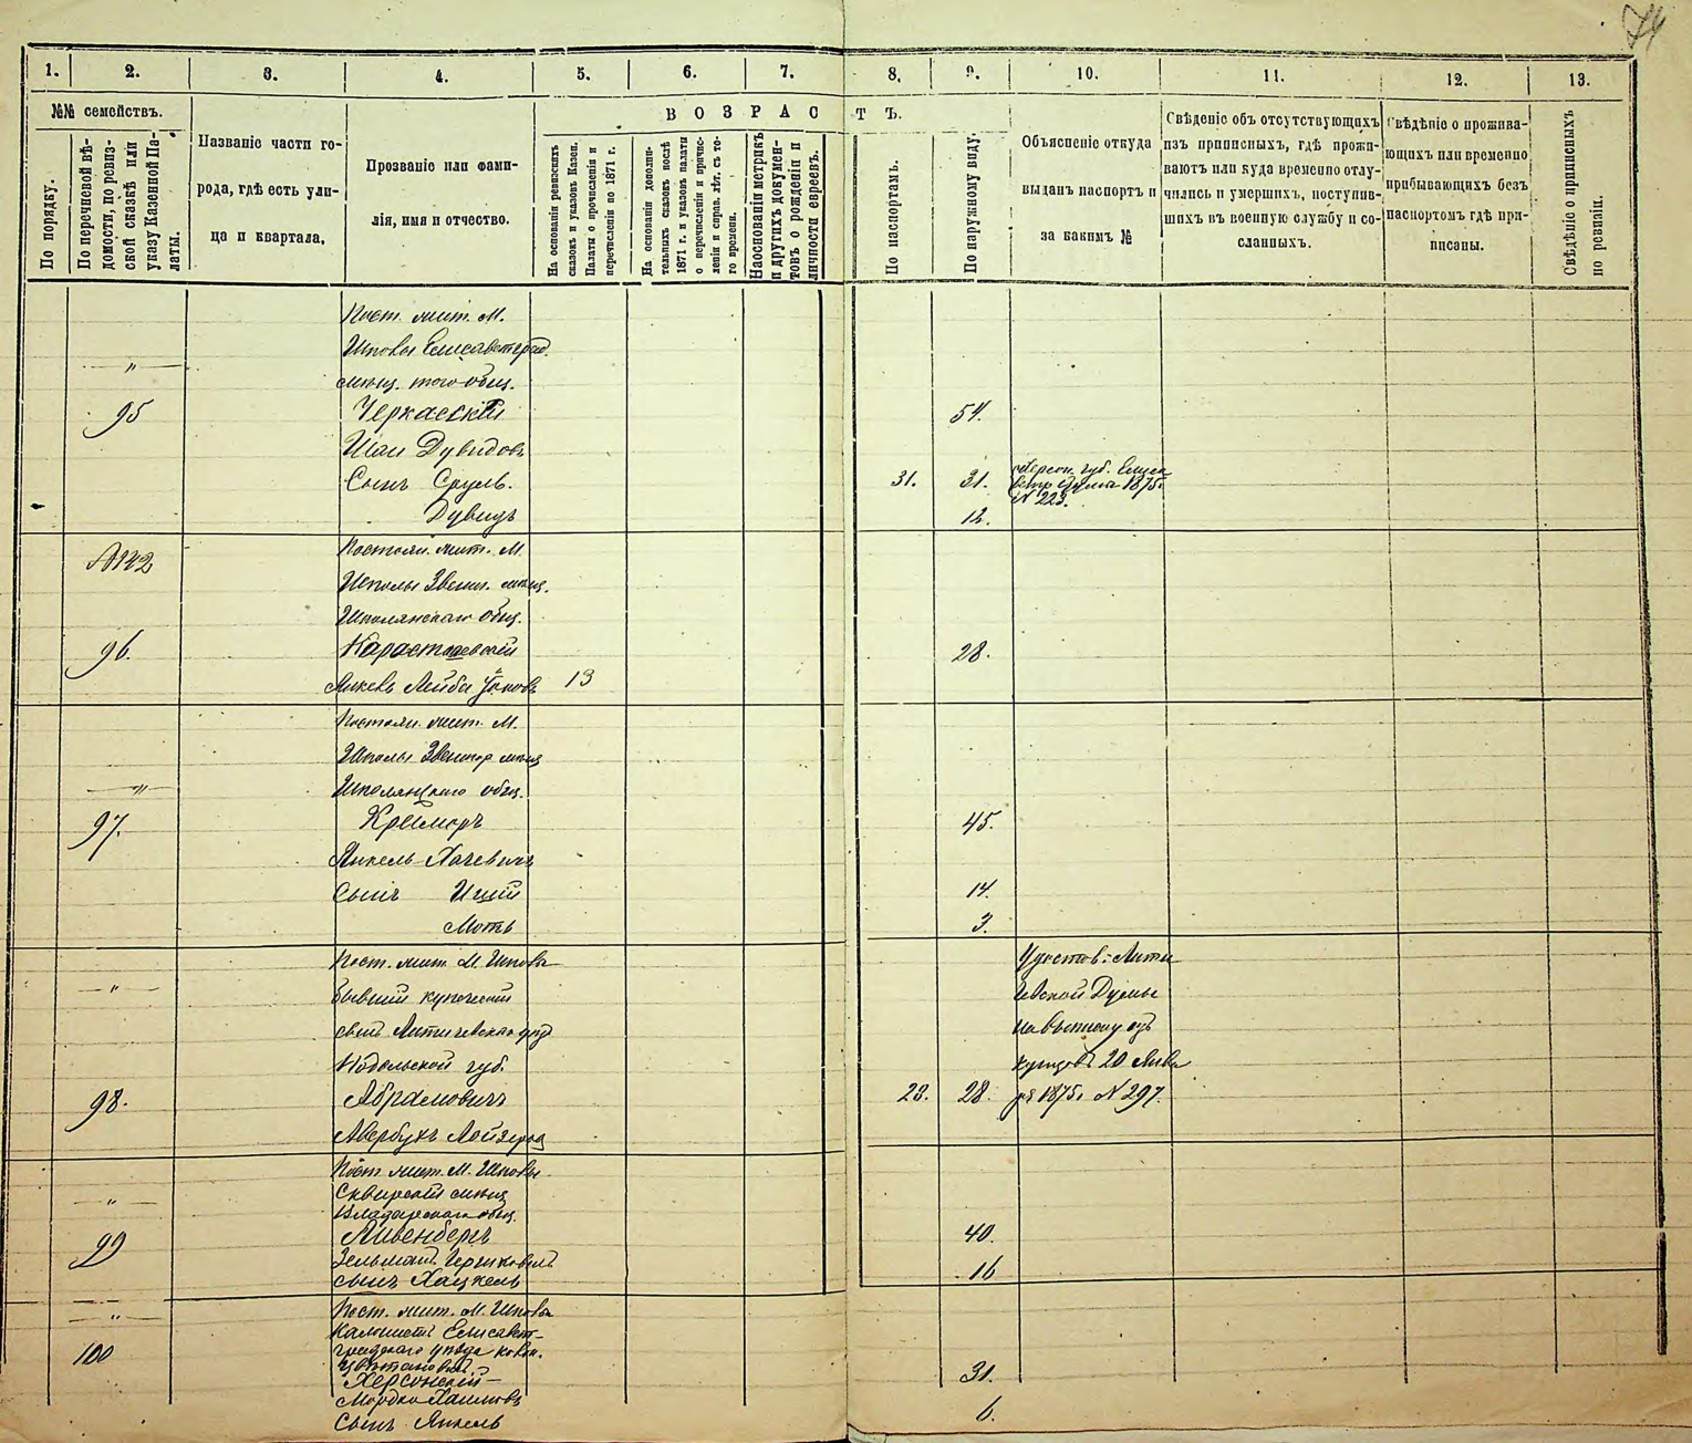 74
1. 2. 3. 4. 5. 6. 7. 8. 9. 10. 11. 12. 13.
№№ семействъ.
По порядку.
По перечневой вѣ-
домости, по ревиз-
ской сказкѣ или
указу Казенной Па-
латы.
Названіе части го-
рода, гдѣ есть ули-
ца и квартала.
Прозваніе или фами-
лія, имя и отчество.
ВОЗРАСТЪ.
На основаніи ревизскихъ
сказокъ и указовъ Казен.
Палаты о причисленіи и
перечисленіи по 1871 г.
На основаніи дополни-
тельныхъ сказокъ послѣ
1871 г. и указовъ палаты
о перечисленіи и причис-
леніи и справ. лѣт. съ то-
го времени.
Наоснованіи метрикъ
и другихъ докумен-
товъ о рожденіи и
личности евреевъ.
По паспортамъ.
По наружному виду.
Объясненіе откуда
выданъ паспортъ и
за какимъ №
Свѣденіе объ отсутствующихъ
изъ приписныхъ, гдѣ прожи-
ваютъ или куда временно отлу-
чились и умершихъ, поступив-
шихъ въ военную службу и со-
сланныхъ.
Свѣдѣніе о прожива-
ющихъ или временно
прибывающихъ безъ
паспортомъ гдѣ при-
писаны.
Свѣдѣніе о приписныхъ
по ревизіи.
Пост. жит. М.
Шполы Елисаветград.
" мѣщ. того общ.
95 Черкасскій 54.
Шаи Дувидовъ
Сынъ Сруль. 31. 31. Херсон. губ. Елиса
1875
N 223.
Дувидъ 12.
Постоян. жит. М.
Шполы Звениг. мѣщ.
Шполянскаго общ.
96. 28.
Лейба 13
Постоян. жит. М.
Шполы Звенигор мѣщ
" Шполянскаго общ.
97. Кремеръ 45.
Янкель
Сынъ Ицій 14.
Моть 3.
Пост. жит. М. Шполы
" бывший купеческій
сынъ Летичевскаго уѣзд
Подольской губ.
98. Абрамовичъ 23. 28.
Авербухъ
Думы
20 Янва
ря 1875 N 297.
Пост. жит. М. Шполы
" Сквирскій мѣщ
общ.
99 Ливенбергъ 40.
Зельманъ Гершковичъ
сынъ Хацкель 16
" Пост. жит. М. Шполы
Елисавет-
100 градскаго уѣзда
Херсонскій 31.
Мордко Хаимовъ
Сынъ Янкель 6.